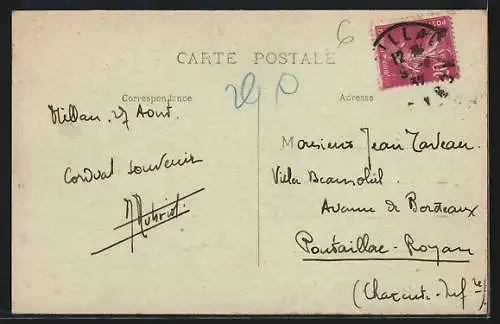 6
MILLAU
CARTE POSTALE
Correspondance
Adresse
Millau, 27 Août.
Cordial souvenir
Monsieur Jean Tardeau
Villa Beausoleil
Avenue de Bordeaux
Pontaillac-Royan
(Charente-Infre